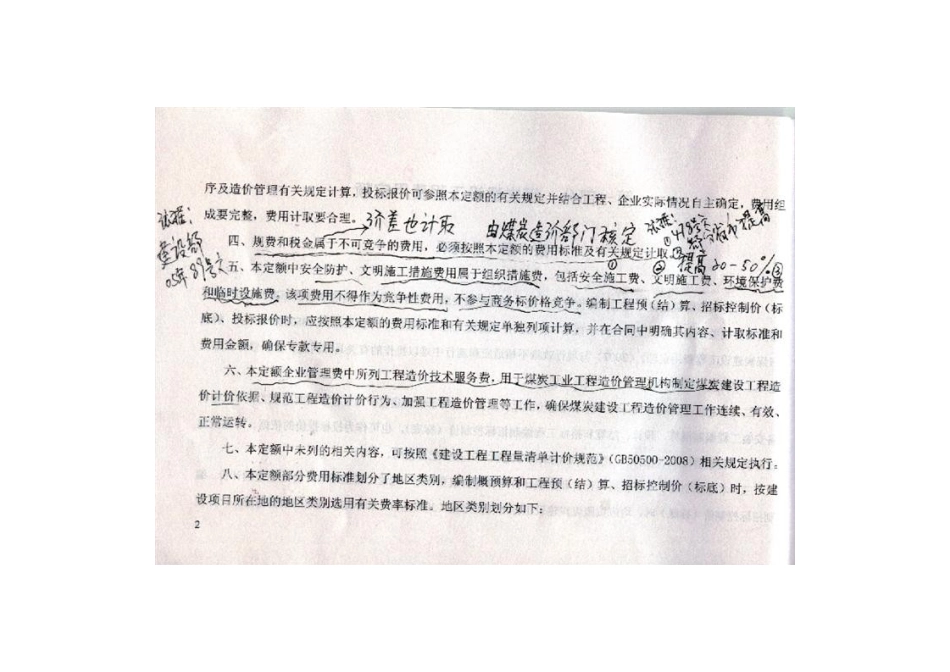 序及造价管理有关规定计算，投标报价可参照本定额的有关规定并结合工程、企业实际情况自主确定，费用组
成要完整，费用计取要合理。
价差也计取
由煤炭造价部门核定
建设部
05年89号文
提高20-50%
四、规费和税金属于不可竞争的费用，必须按照本定额的费用标准及有关规定计取。
五、本定额中安全防护、文明施工措施费用属于组织措施费，包括安全施工费、文明施工费、环境保护费
和临时设施费。该项费用不得作为竞争性费用，不参与商务标价格竞争。编制工程预（结）算、招标控制价（标
底）、投标报价时，应按照本定额的费用标准和有关规定单独列项计算，并在合同中明确其内容、计取标准和
费用金额，确保专款专用。
六、本定额企业管理费中所列工程造价技术服务费，用于煤炭工业工程造价管理机构制定煤炭建设工程造
价计价依据、规范工程造价计价行为、加强工程造价管理等工作，确保煤炭建设工程造价管理工作连续、有效、
正常运转。
七、本定额中未列的相关内容，可按照《建设工程工程量清单计价规范》（GB50500-2008）相关规定执行。
八、本定额部分费用标准划分了地区类别，编制概预算和工程预（结）算、招标控制价（标底）时，按建
设项目所在地的地区类别选用有关费率标准。地区类别划分如下：
2